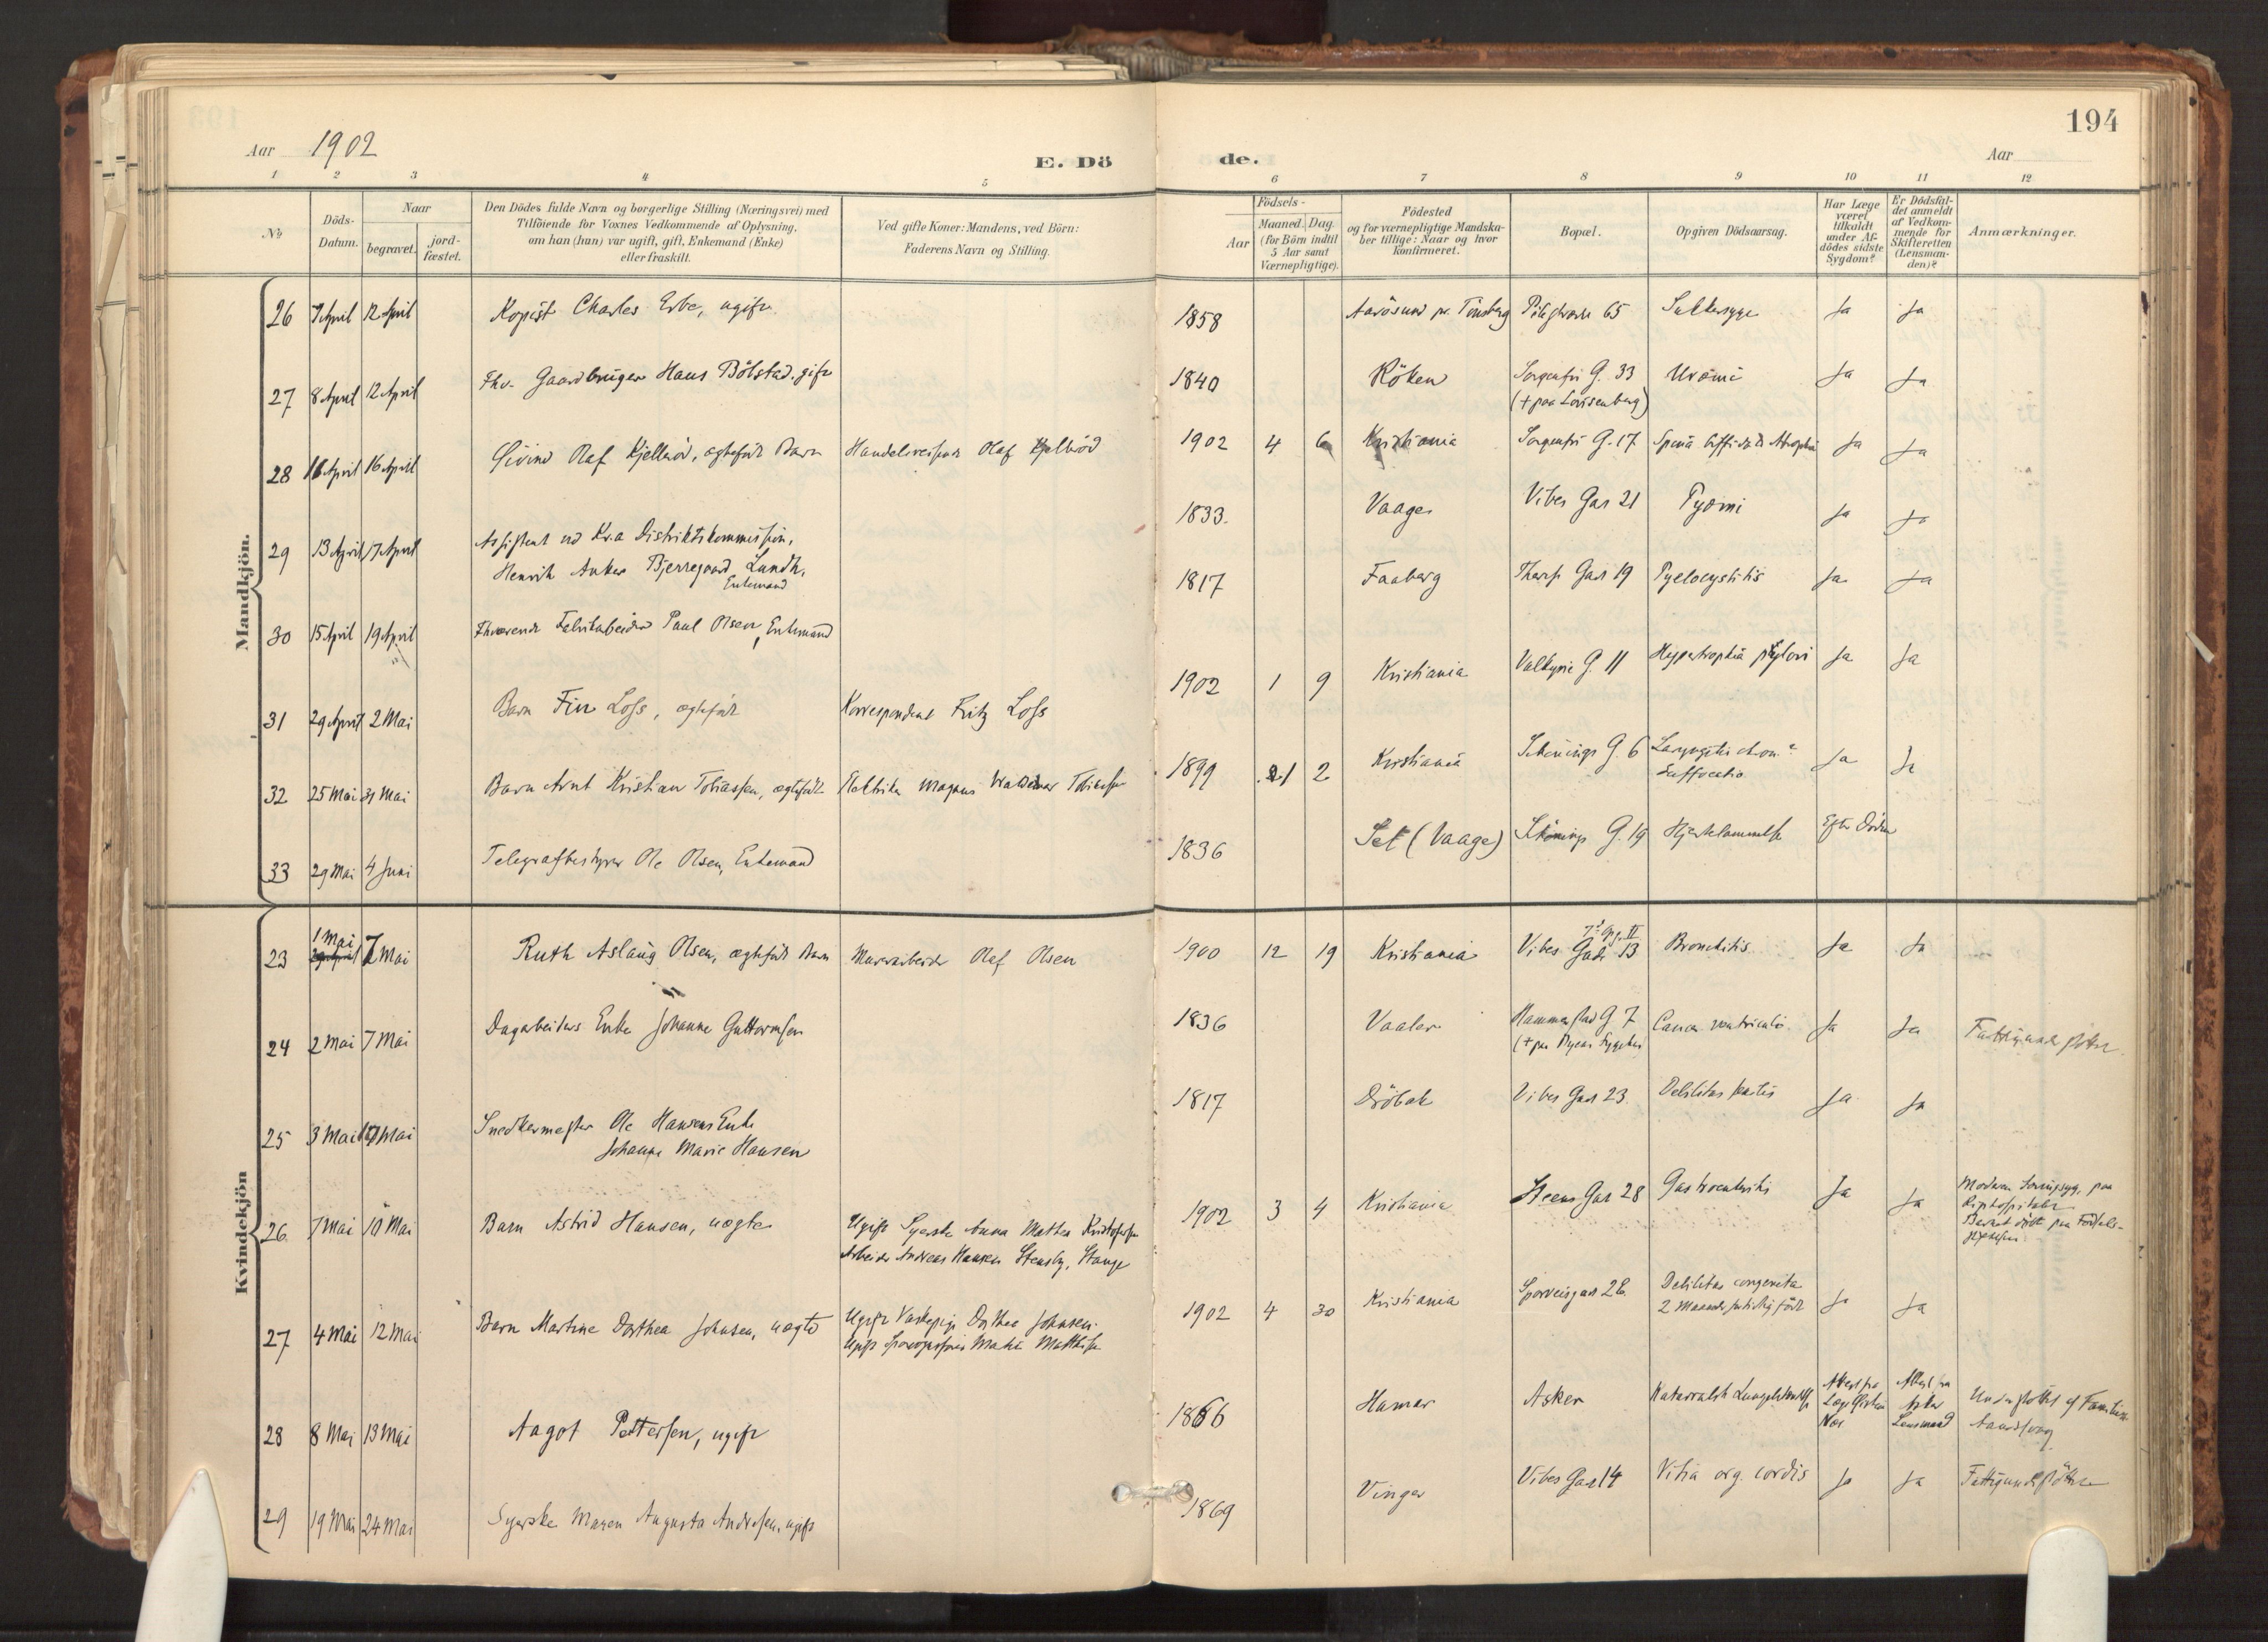 194
Aar 1902
E. Dö
de.
Aar
1 2 3 4 5 6 7 8 9 10 11 12
№
Döds-
Datum.
Naar
begravet.
jord-
fæstet.
Den Dödes fulde Navn og borgerlige Stilling (Næringsvei) med
Tilföiende for Voxnes Vedkommende af Oplysning,
om han (hun) var ugift, gift, Enkemand (Enke)
eller fraskilt.
Ved gifte Koner: Mandens, ved Börn:
Faderens Navn og Stilling.
Födsels-
Aar
Maaned. Dag.
(for Börn indtil
5 Aar samt
Værnepligtige).
Födested
og for værnepligtige Mandska-
ber tillige: Naar og hvor
konfirmeret.
Bopæl.
Opgiven Dödsaarsag.
Har Læge
været
tilkaldt
under Af-
dödes sidste
Sygdom?
Er Dödsfal-
det anmeldt
af Vedkom-
mende for
Skifteretten
(Lensman-
den)?
Anmærkninger.
Mandkjön.
26 7 April 12 April Kopist Charles Erbe, ugift 1858 Aarösund pr. Tönsberg Pilestræde 65 Sukkersyge Ja Ja
27 8 April 12 April Fhv. Gaardbruger Hans Bölstad, gift 1840 Röken Sorgenfri G. 33 Urämi Ja Ja
(+ paa Lovisenberg)
28 11 April 16 April Eivind Olaf Kjelleröd, ægtefödt Barn Handelsreisende Olaf Kjelleröd 1902 4 6 Kristiania Sorgenfri G. 17 Spina bifida & Atrophia Ja Ja
29 13 April 17 April Assistent ved Kr.a Distriktskommission,
Henrik Anker Bjerregaard Lundh,
Enkemand 1833. Vaage Vibes Gad 21 Pyämi Ja Ja
30 15 April 19 April Fhværende Fabrikabeider Paul Olsen, Enkemand 1817 Faaberg Gade 19 Pyelocystitis Ja Ja
31 29 April 2 Mai Barn Finn Loss, ægtefödt Korrespondent Fritz Loss 1902 1 9 Kristiania Valkyrie G. 11 Hypertrophia pylori Ja Ja
32 25 Mai 31 Mai Barn Arnt Kristian Tobiassen, ægtefödt Elektriker Magnus Waldemar Tobiassen 1899 21 2 Kristiania Schönings G. 6 Laryngitis chron.
Suffocatio Ja Ja
33 29 Mai 4 Juni Telegrafbestyrer Ole Olsen, Enkemand 1836 Sel (Vaage) Schönings G. 19 Hjertelammelse Efter Döden
Kvindekjön
23 1 Mai 7 Mai Ruth Aslaug Olsen, ægtefödt Barn Murarbeider Olaf Olsen 1900 12 19 Kristiania Vibes Gade 13 Bronchitis Ja Ja
24 2 Mai 7 Mai Dagarbeiders Enke Johanne Guttormsen 1836 Vaaler Hammerstad G. 7 Cancer ventriculi Ja Ja Fattigunderstöttet
25 3 Mai 7 Mai Snedkermester Ole Hansens Enke
Johanne Marie Hansen 1817 Dröbak Vibes Gad 23 Debilitas senilis Ja Ja
26. 7 Mai 10 Mai Barn Astrid Hansen, uægte Ugift Syerske Anna Mathea Kristofersen
Arbeider Andreas Hansen Stensby, Stange 1902 3 4 Kristiania Steens Gad 28 Gastroenteritis Ja Ja Moderen paa
Rigshospitalet
Barnet födt paa Födsels-
stiftelsen
27 4 Mai 12 Mai Barn Martine Dorthea Johnsen, uægte Ugift Vaskepige Dorthea Johnsen
Ugift 1902 4 30 Kristiania Sporveisgad 26 Debilitas congenita
2 Maaneder fortidlig födt Ja Ja
28 8 Mai 13 Mai Aagot Pettersen, ugift 1866 Hamar Asker Katarralsk Lungebetændelse Attest fra
Læge Attest fra
Asker
Lensmand Understöttet af
29 19 Mai 24 Mai Syerske Maren Augusta Andersen, ugift 1869 Vinger Vibes Gad 14 Vitia org. cordis Ja Ja Fattigunderstöttet